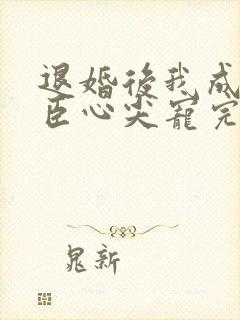 退婚後我成
臣心尖寵完
晁新